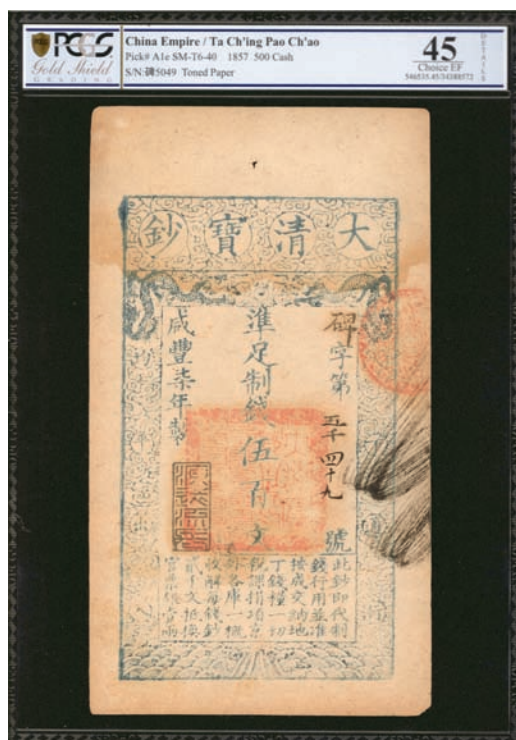 PCGS
Gold Shield
GRADING
China Empire / Ta Ch'ing Pao Ch'ao
Pick# A1e SM-T6-40 1857 500 Cash
S/N:碑5049 Toned Paper
45
Choice EF
546535.45/34388572
DETAILS
大清寶鈔
碑字第五千四十九號
準足制錢伍百文
咸豐柒年製
此鈔即代制
錢行用並准
按成交納地
丁錢糧一切
稅課捐項